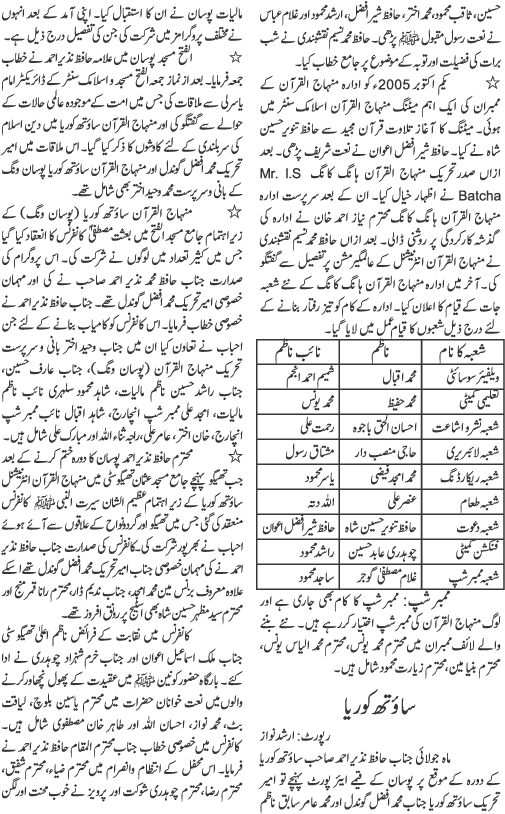 حسین، ثاقب محمود، محمد اختر، حافظ شیر افضل، ارشد محمود اور غلام عباس
نے نعت رسول مقبول ﷺ پڑھی۔ حافظ محمد نسیم نقشبندی نے شب
برات کی فضیلت اور توبہ کے موضوع پر جامع خطاب کیا۔
☆ یکم اکتوبر 2005ء کو ادارہ منہاج القرآن کے
ممبران کی ایک اہم میٹنگ منہاج القرآن اسلامک سنٹر میں
ہوئی۔ میٹنگ کا آغاز تلاوت قرآن مجید سے حافظ تنویر حسین
شاہ نے کیا۔ حافظ شیر افضل اعوان نے نعت شریف پڑھی۔ بعد
ازاں صدر تحریک منہاج القرآن ہانگ کانگ Mr. I.S
Batcha نے اظہار خیال کیا۔ ان کے بعد سرپرست
منہاج القرآن ہانگ کانگ محترم نیاز احمد خان نے ادارہ کی
گذشتہ کارکردگی پر روشنی ڈالی۔ بعد ازاں حافظ محمد نسیم نقشبندی
نے منہاج القرآن انٹرنیشنل کے عالمگیر مشن پر تفصیل سے گفتگو
کی۔ آخر میں ادارہ منہاج القرآن ہانگ کانگ کے نئے شعبہ
جات کے قیام کا اعلان کیا۔ ادارہ کے کام کو تیز رفتار بنانے کے
لئے درج ذیل شعبوں کا قیام عمل میں لایا گیا۔
شعبہ کا نام ناظم نائب ناظم
ویلفیئر سوسائٹی محمد اقبال شمیم احمد انجم
تعلیمی کمیٹی محمد حفیظ محمد یونس
شعبہ نشر و اشاعت احسان الحق باجوہ رحمت علی
شعبہ لائبریری حاجی منصب دار مشتاق رسول
شعبہ ریکارڈنگ محمد امجد فیضی یاسر محمود
شعبہ طعام عنصر علی اللہ دتہ
شعبہ دعوت حافظ تنویر حسین شاہ حافظ شیر افضل اعوان
فنکشن کمیٹی چوہدری عابد حسین راشد محمود
شعبہ ممبر شپ غلام مصطفیٰ گوجر ساجد محمود
ممبر شپ: ممبر شپ کا کام بھی جاری ہے اور
لوگ منہاج القرآن کی ممبر شپ اختیار کر رہے ہیں۔ نئے بننے
والے لائف ممبران میں محترم محمد یونس، محترم محمد الیاس یونس،
محترم بنیامین، محترم زیارت محمود شامل ہیں۔
ساؤتھ کوریا
رپورٹ: ارشد نواز
ماہ جولائی جناب حافظ نذیر احمد صاحب ساؤتھ کوریا
کے دورہ کے موقع پر پوسان کے قیمے ایئرپورٹ پہنچے تو امیر
تحریک ساؤتھ کوریا جناب محمد افضل گوندل اور محمد عامر سابق ناظم
مالیات پوسان نے ان کا استقبال کیا۔ اپنی آمد کے بعد انہوں
نے مختلف پروگرامز میں شرکت کی جن کی تفصیل درج ذیل ہے۔
☆ الفتح مسجد پوسان میں علامہ حافظ نذیر احمد نے خطاب
جمعہ فرمایا۔ بعد از نماز جمعہ الفتح مسجد و اسلامک سنٹر کے ڈائریکٹر امام
یاسر لی سے ملاقات کی جس میں امت کے موجودہ عالمی حالات کے
حوالے سے گفتگو کی اور منہاج القرآن ساؤتھ کوریا میں دین اسلام
کی سربلندی کے لئے کاوشوں کا ذکر کیا گیا۔ اس ملاقات میں امیر
تحریک محمد افضل گوندل اور منہاج القرآن ساؤتھ کوریا پوسان ونگ
کے بانی و سرپرست محمد وحید اختر بھی شامل تھے۔
☆ منہاج القرآن ساؤتھ کوریا (پوسان ونگ) کے
زیر اہتمام جامع مسجد الفتح میں بعثت مصطفیٰ کانفرنس کا انعقاد کیا گیا
جس میں کثیر تعداد میں لوگوں نے شرکت کی۔ اس پروگرام کی
صدارت جناب حافظ محمد نذیر احمد صاحب نے کی اور مہمان
خصوصی امیر تحریک محمد افضل گوندل تھے۔ جناب حافظ نذیر احمد نے
خصوصی خطاب فرمایا۔ اس کانفرنس کو کامیاب بنانے کے لئے جن
احباب نے تعاون کیا ان میں جناب وحید اختر بانی و سرپرست
تحریک منہاج القرآن (پوسان ونگ)، جناب عارف حسین،
جناب راشد حسین ناظم مالیات، شاہد محمود سلہری نائب ناظم
مالیات، امجد علی ممبر شپ انچارج، شاہد اقبال نائب ممبر شپ
انچارج، خان اختر، عامر علی، راجہ ثناء اللہ اور مبارک علی شامل ہیں۔
☆ محترم حافظ نذیر احمد پوسان کا دورہ ختم کرنے کے بعد
جب تھیگو پہنچے جامع مسجد عثمان تھیگو سٹی میں منہاج القرآن انٹرنیشنل
ساؤتھ کوریا کے زیر اہتمام عظیم الشان سیرت النبی ﷺ کانفرنس
منعقد کی گئی جس میں تھیگو اور گردونواح کے علاقوں سے آئے ہوئے
احباب نے بھرپور شرکت کی۔ کانفرنس کی صدارت جناب حافظ نذیر
احمد نے کی مہمان خصوصی جناب امیر تحریک محمد افضل گوندل تھے اسکے
علاوہ معروف بزنس مین محمد امجد، جناب ندیم ڈار، محترم رانا قمر منج اور
محترم سید مظہر حسین شاہ بھی اسٹیج پر رونق افروز تھے۔
کانفرنس میں نقابت کے فرائض ناظم اعلیٰ تھیگو سٹی
جناب ملک اسماعیل اعوان اور جناب خرم شہزاد چوہدری نے ادا
کئے۔ بارگاہ حضور کونین ﷺ میں عقیدت کے پھول نچھاور کرنے
والوں میں نعت خوانان حضرات میں محترم یاسین بلوچ، لیاقت
بٹ، محمد نواز، احسان اللہ اور طاہر خان مصطفوی شامل ہیں۔
کانفرنس میں خصوصی خطاب جناب محترم المقام حافظ نذیر احمد نے
فرمایا۔ اس محفل کے انتظام وانصرام میں محترم ضیاء، محترم شفیق،
محترم رضا، محترم چوہدری شوکت اور پرویز نے خوب محنت اور لگن